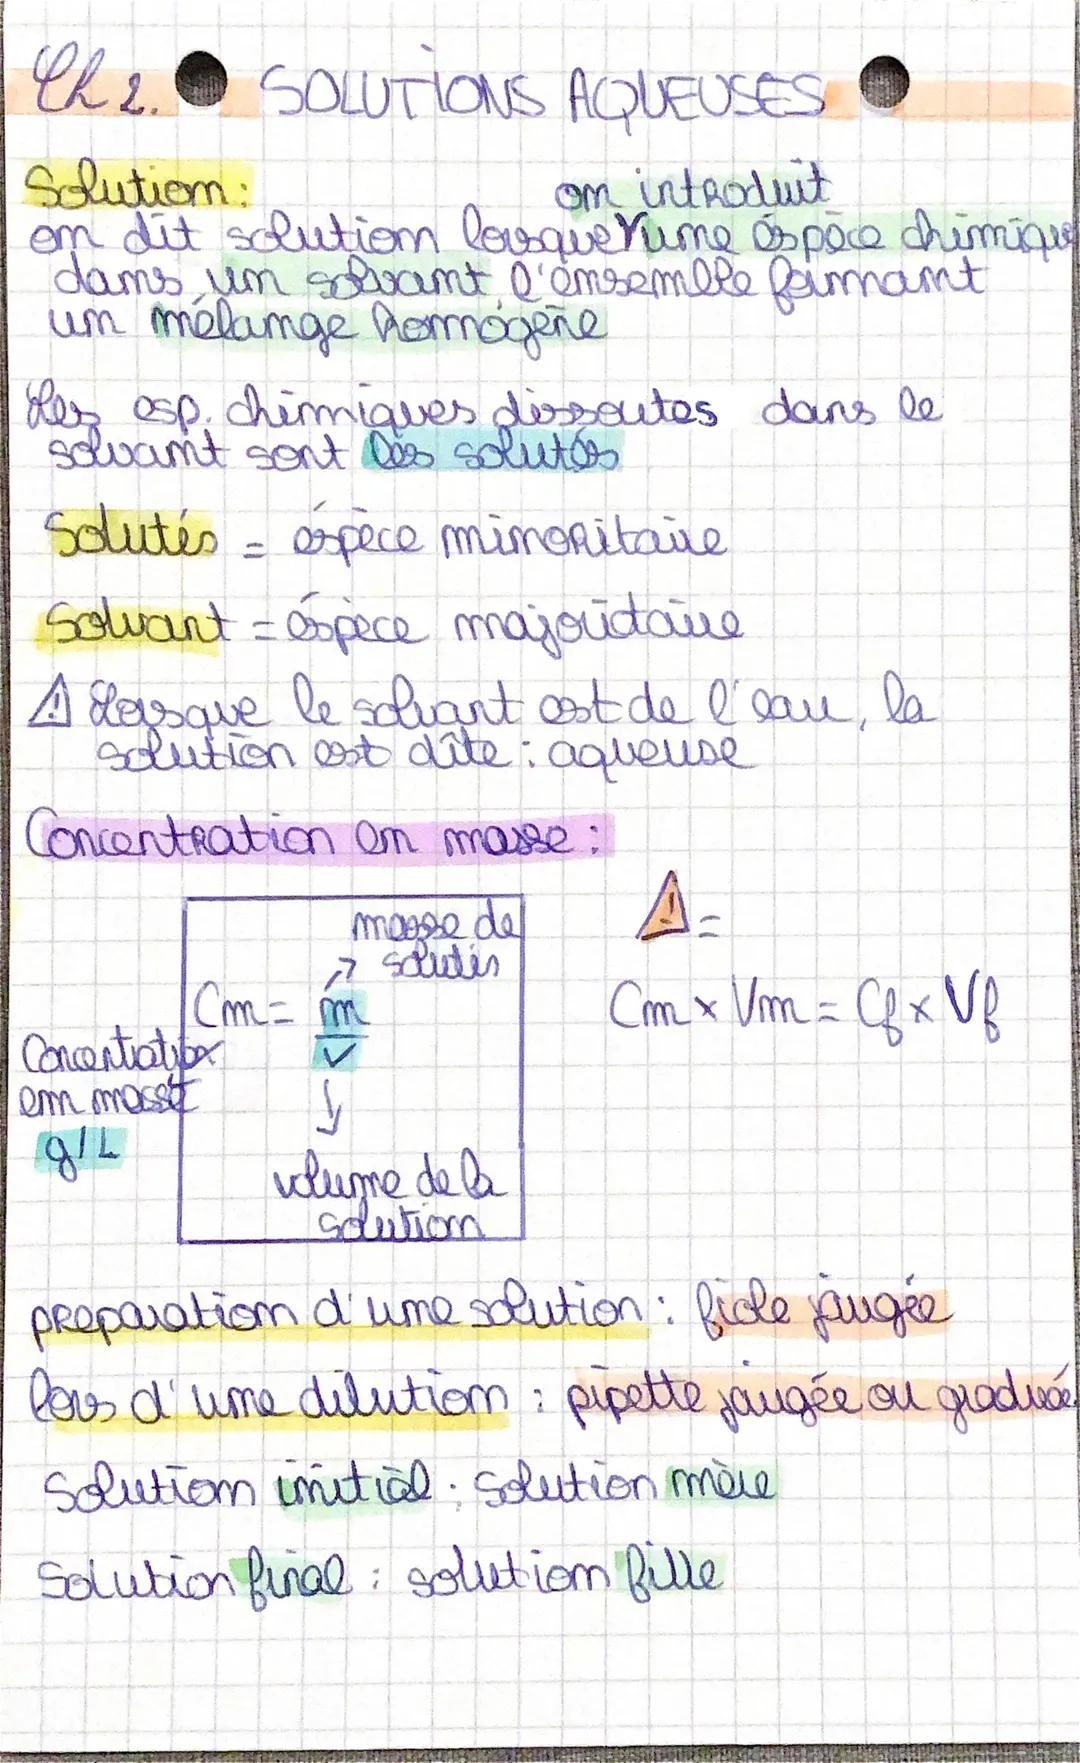 Ch 2. SOLUTIONS AQUEUSES
Solution:
on introduit
on dit solution lorsque une espèce chimique
dans un solvant, l'ensemble formant
un mélange homogène
Les esp. chimiques dissoutes dans le
solvant sont les solutés
Solutés = espèce minoritaire
Solvant = espèce majoritaire
⚠ Lorsque le solvant est de l'eau, la
solution est dîte : aqueuse
Concentration en masse :
masse de
solutés
Cm = m
V
Concentration
en masse
g/L
volume de la
solution
⚠ =
Cm x Vm = Cf x Vf
preparation d'une solution : fiole jaugée
lors d'une dilution : pipette jaugée ou graduée
Solution initial : solution mère
Solution final : solution fille